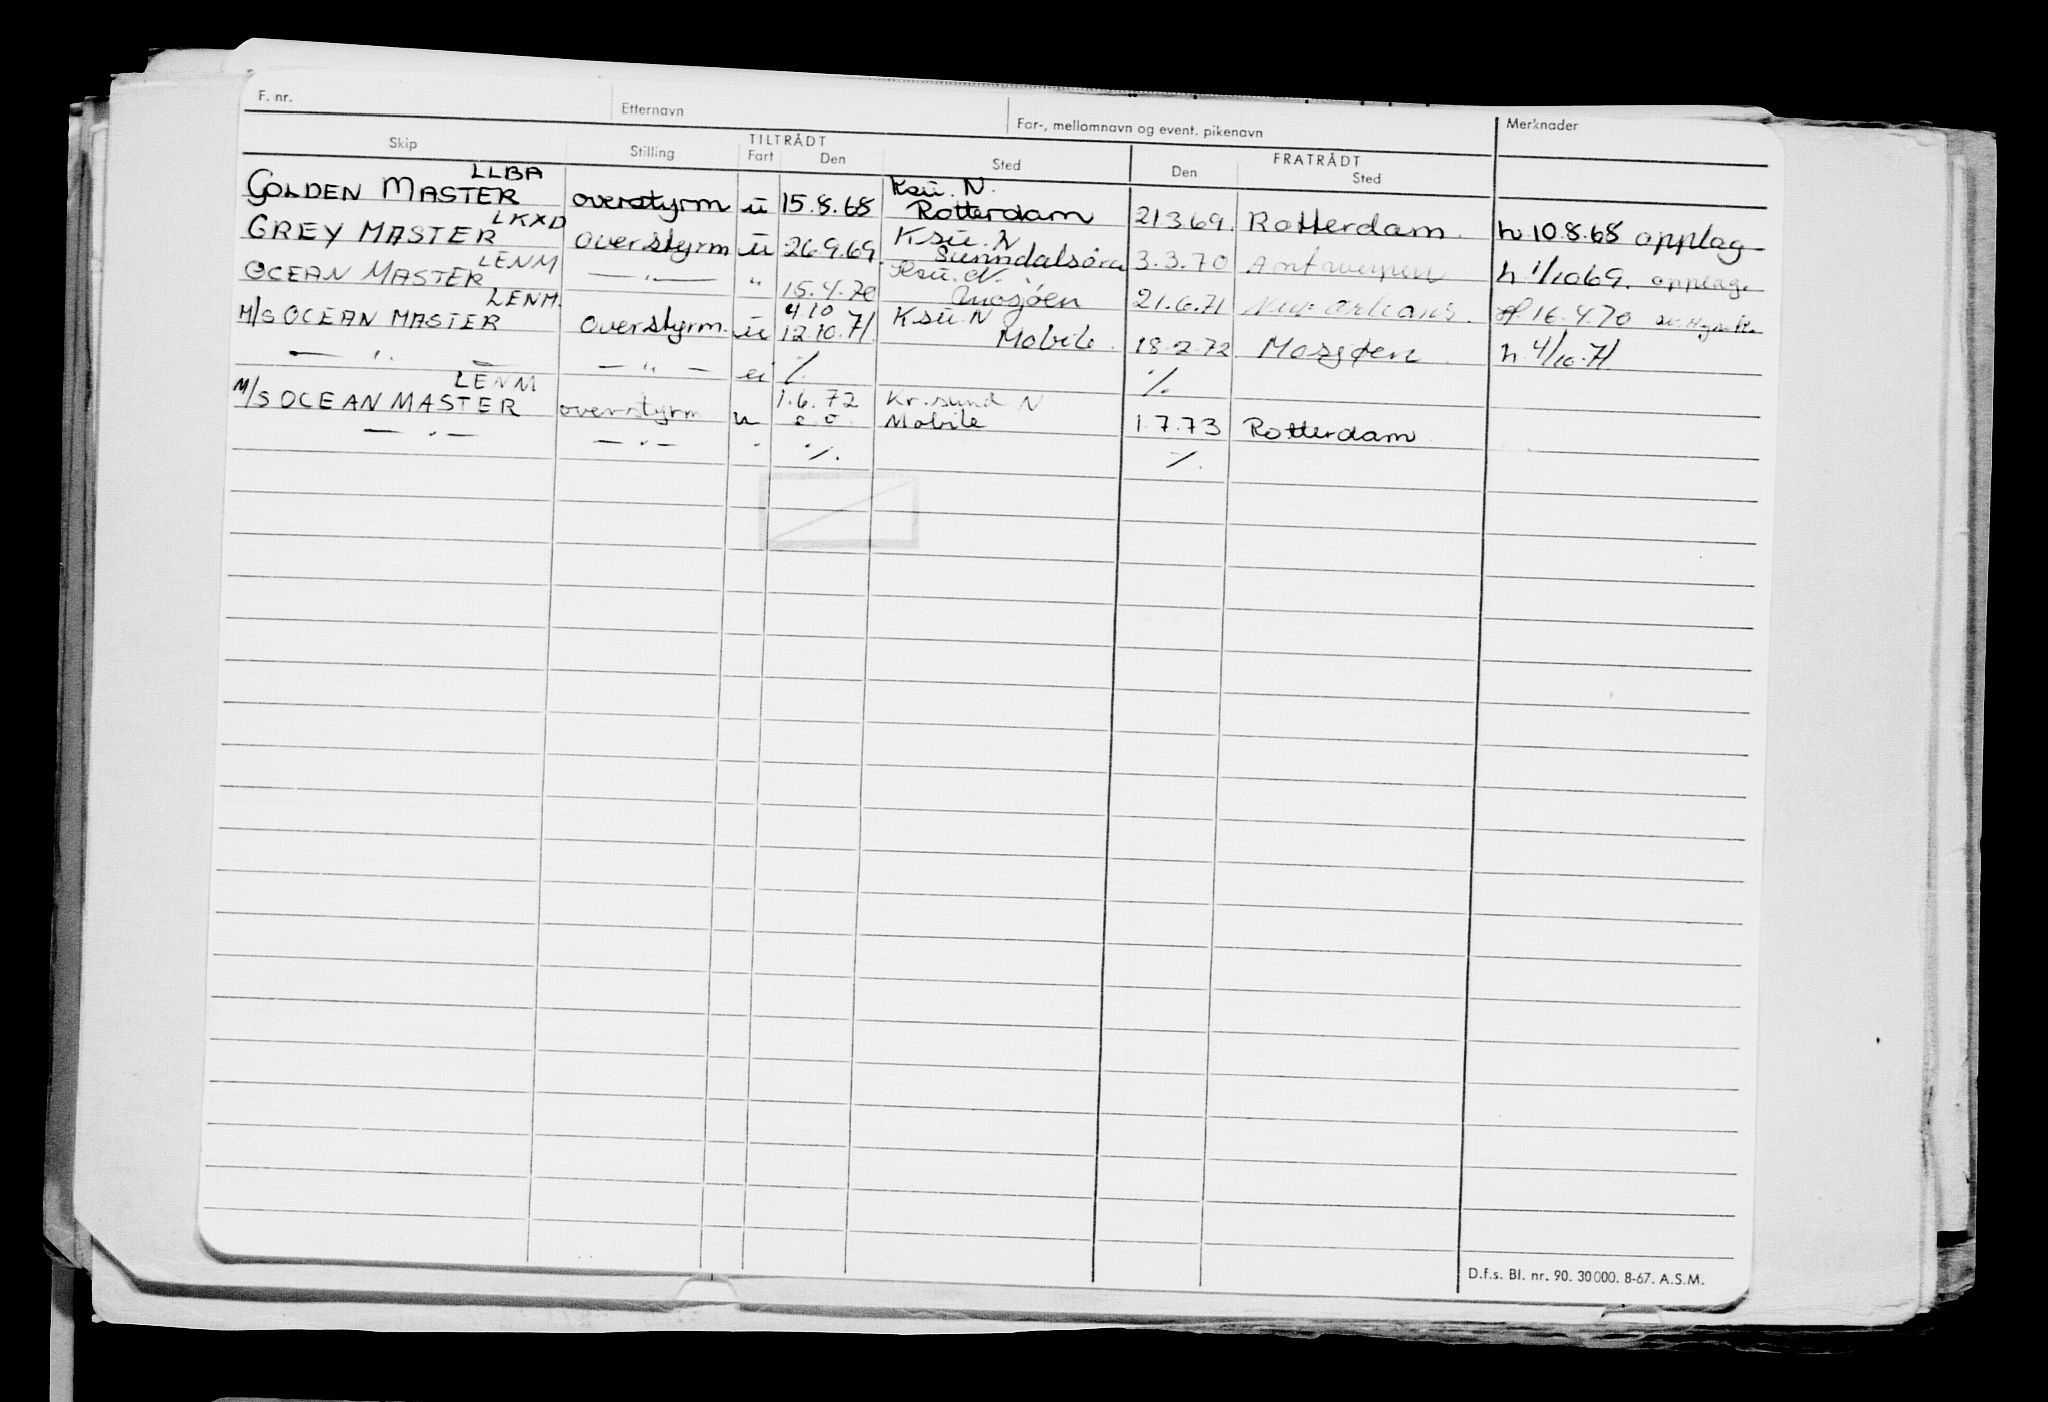 F. nr. Etternavn For-, mellomnavn og event. pikenavn Merknader
TILTRÅDT FRATRÅDT
Skip Stilling Fart Den Sted Den Sted
LLBA Ksu. N.
GOLDEN MASTER overstyrm u 15.8.68 Rotterdam 21 3 69. Rotterdam. h 10.8.68 opplag
LKXD Ksu. N
GREY MASTER overstyrm u 26.9.69. Sunndalsøra 3.3.70 Antwerpen h 1/10 69. opplag.
LENM Ksu. N.
OCEAN MASTER — " — " 15.4.70 Mosjøen 21.6.71 New Orleans. 16.4.70
LENM. 4.10 Ksu. N
M/S OCEAN MASTER overstyrm. u 12.10.71. Mobile. 18.2.72. Mosjøen. h. 4/10.71
— " — — " — ei ./. ./.
LENM 1.6.72 Kr.sund N
M/S OCEAN MASTER overstyrm. u Mobile 1.7.73 Rotterdam.
— " — — " — " ./. ./.
D.f.s. Bl. nr. 90. 30000. 8-67. A.S.M.